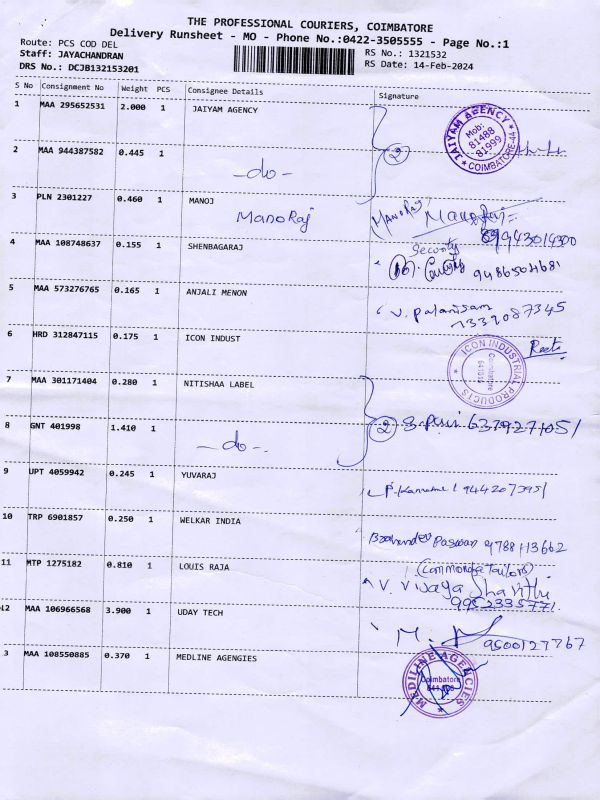 THE PROFESSIONAL COURIERS, COIMBATORE
Delivery Runsheet - MO - Phone No.:0422-3505555 - Page No.:1
Route: PCS COD DEL
Staff: JAYACHANDRAN
DRS No.: DCJB132153201
RS No.: 1321532
RS Date: 14-Feb-2024
S No Consignment No Weight PCS Consignee Details Signature
1 MAA 295652531 2.000 1 JAIYAM AGENCY
JAIYAM AGENCY
Mob:
81488
81999
COIMBATORE-44
2 MAA 944387582 0.445 1
-do-
2
3 PLN 2301227 0.460 1 MANOJ
Manoraj
MANORAJ
9943014300
4 MAA 108748637 0.155 1 SHENBAGARAJ
Security
9486504681
5 MAA 573276765 0.165 1 ANJALI MENON
V. Palanisam
7339087345
6 HRD 312847115 0.175 1 ICON INDUST
ICON INDUSTRIAL PRODUCTS
Coimbatore
7 MAA 301171404 0.280 1 NITISHAA LABEL
8 GNT 401998 1.410 1
-do-
2
9 UPT 4059942 0.245 1 YUVARAJ
10 TRP 6901857 0.250 1 WELKAR INDIA
9788113662
11 MTP 1275182 0.810 1 LOUIS RAJA
V. Vijaya Shanthi
9952335771
12 MAA 106966568 3.900 1 UDAY TECH
9500127767
3 MAA 108550885 0.370 1 MEDLINE AGENGIES
MEDILINE AGENCIES
Coimbatore